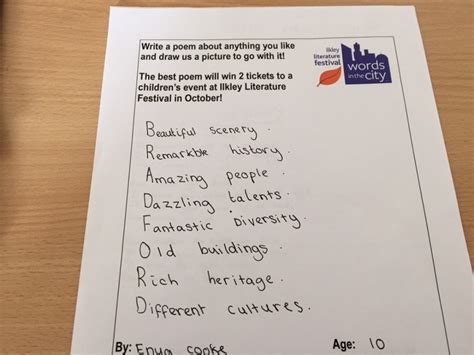 Write a poem about anything you like
and draw us a picture to go with it!
The best poem will win 2 tickets to a
children's event at Ilkley Literature
Festival in October!
ilkley
literature
festival
words
in the
city
Beautiful scenery.
Remarkble history.
Amazing people.
Dazzling talents.
Fantastic Diversity.
Old buildings.
Rich heritage.
Different cultures.
By: Enya cooke Age: 10